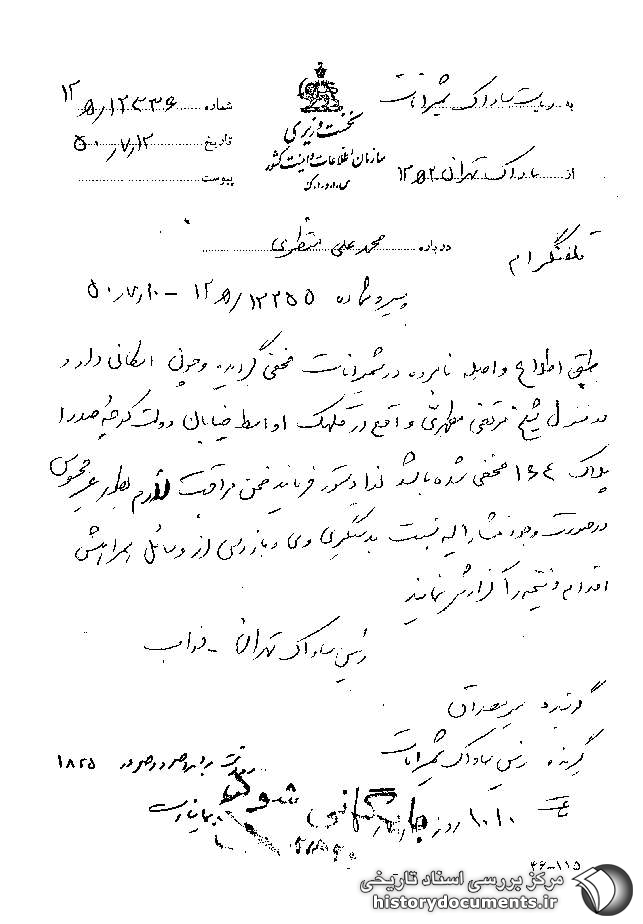 به ریاست ساواک شمیرانات
از ساواک تهران ۱۲ ه ۲
نخست وزیری
سازمان اطلاعات و امنیت کشور
س.ا.و.ا.ک
شماره ۱۲۳۳۶/ه ۱۲
تاریخ ۵۰٫۷٫۱۲
پیوست
تلفنگرام
درباره محمد علی منتظری
پیرو شماره ۱۲۲۵۵/ه ۱۲ - ۵۰٫۷٫۱۰
طبق اطلاع واصله نامبرده در شمیرانات مخفی گردیده و چون امکان دارد
در منزل شیخ مرتضی مطهری واقع در قلهک اواسط خیابان دولت کوچه صدرا
پلاک ۱۶۴ مخفی شده باشد لذا دستور فرمایید ضمن مراقبت لازم بطور غیر محسوس
در صورت وجود مشارالیه نسبت بدستگیری وی و بازرسی از وسائل همراهش
اقدام و نتیجه را گزارش نمایند
رئیس ساواک تهران - نواب
گوینده
گیرنده رئیس ساواک شمیرانات
۱۸۲۵
بایگانی شود
۴۶-۱۱۵
مرکز بررسی اسناد تاریخی
historydocuments.ir